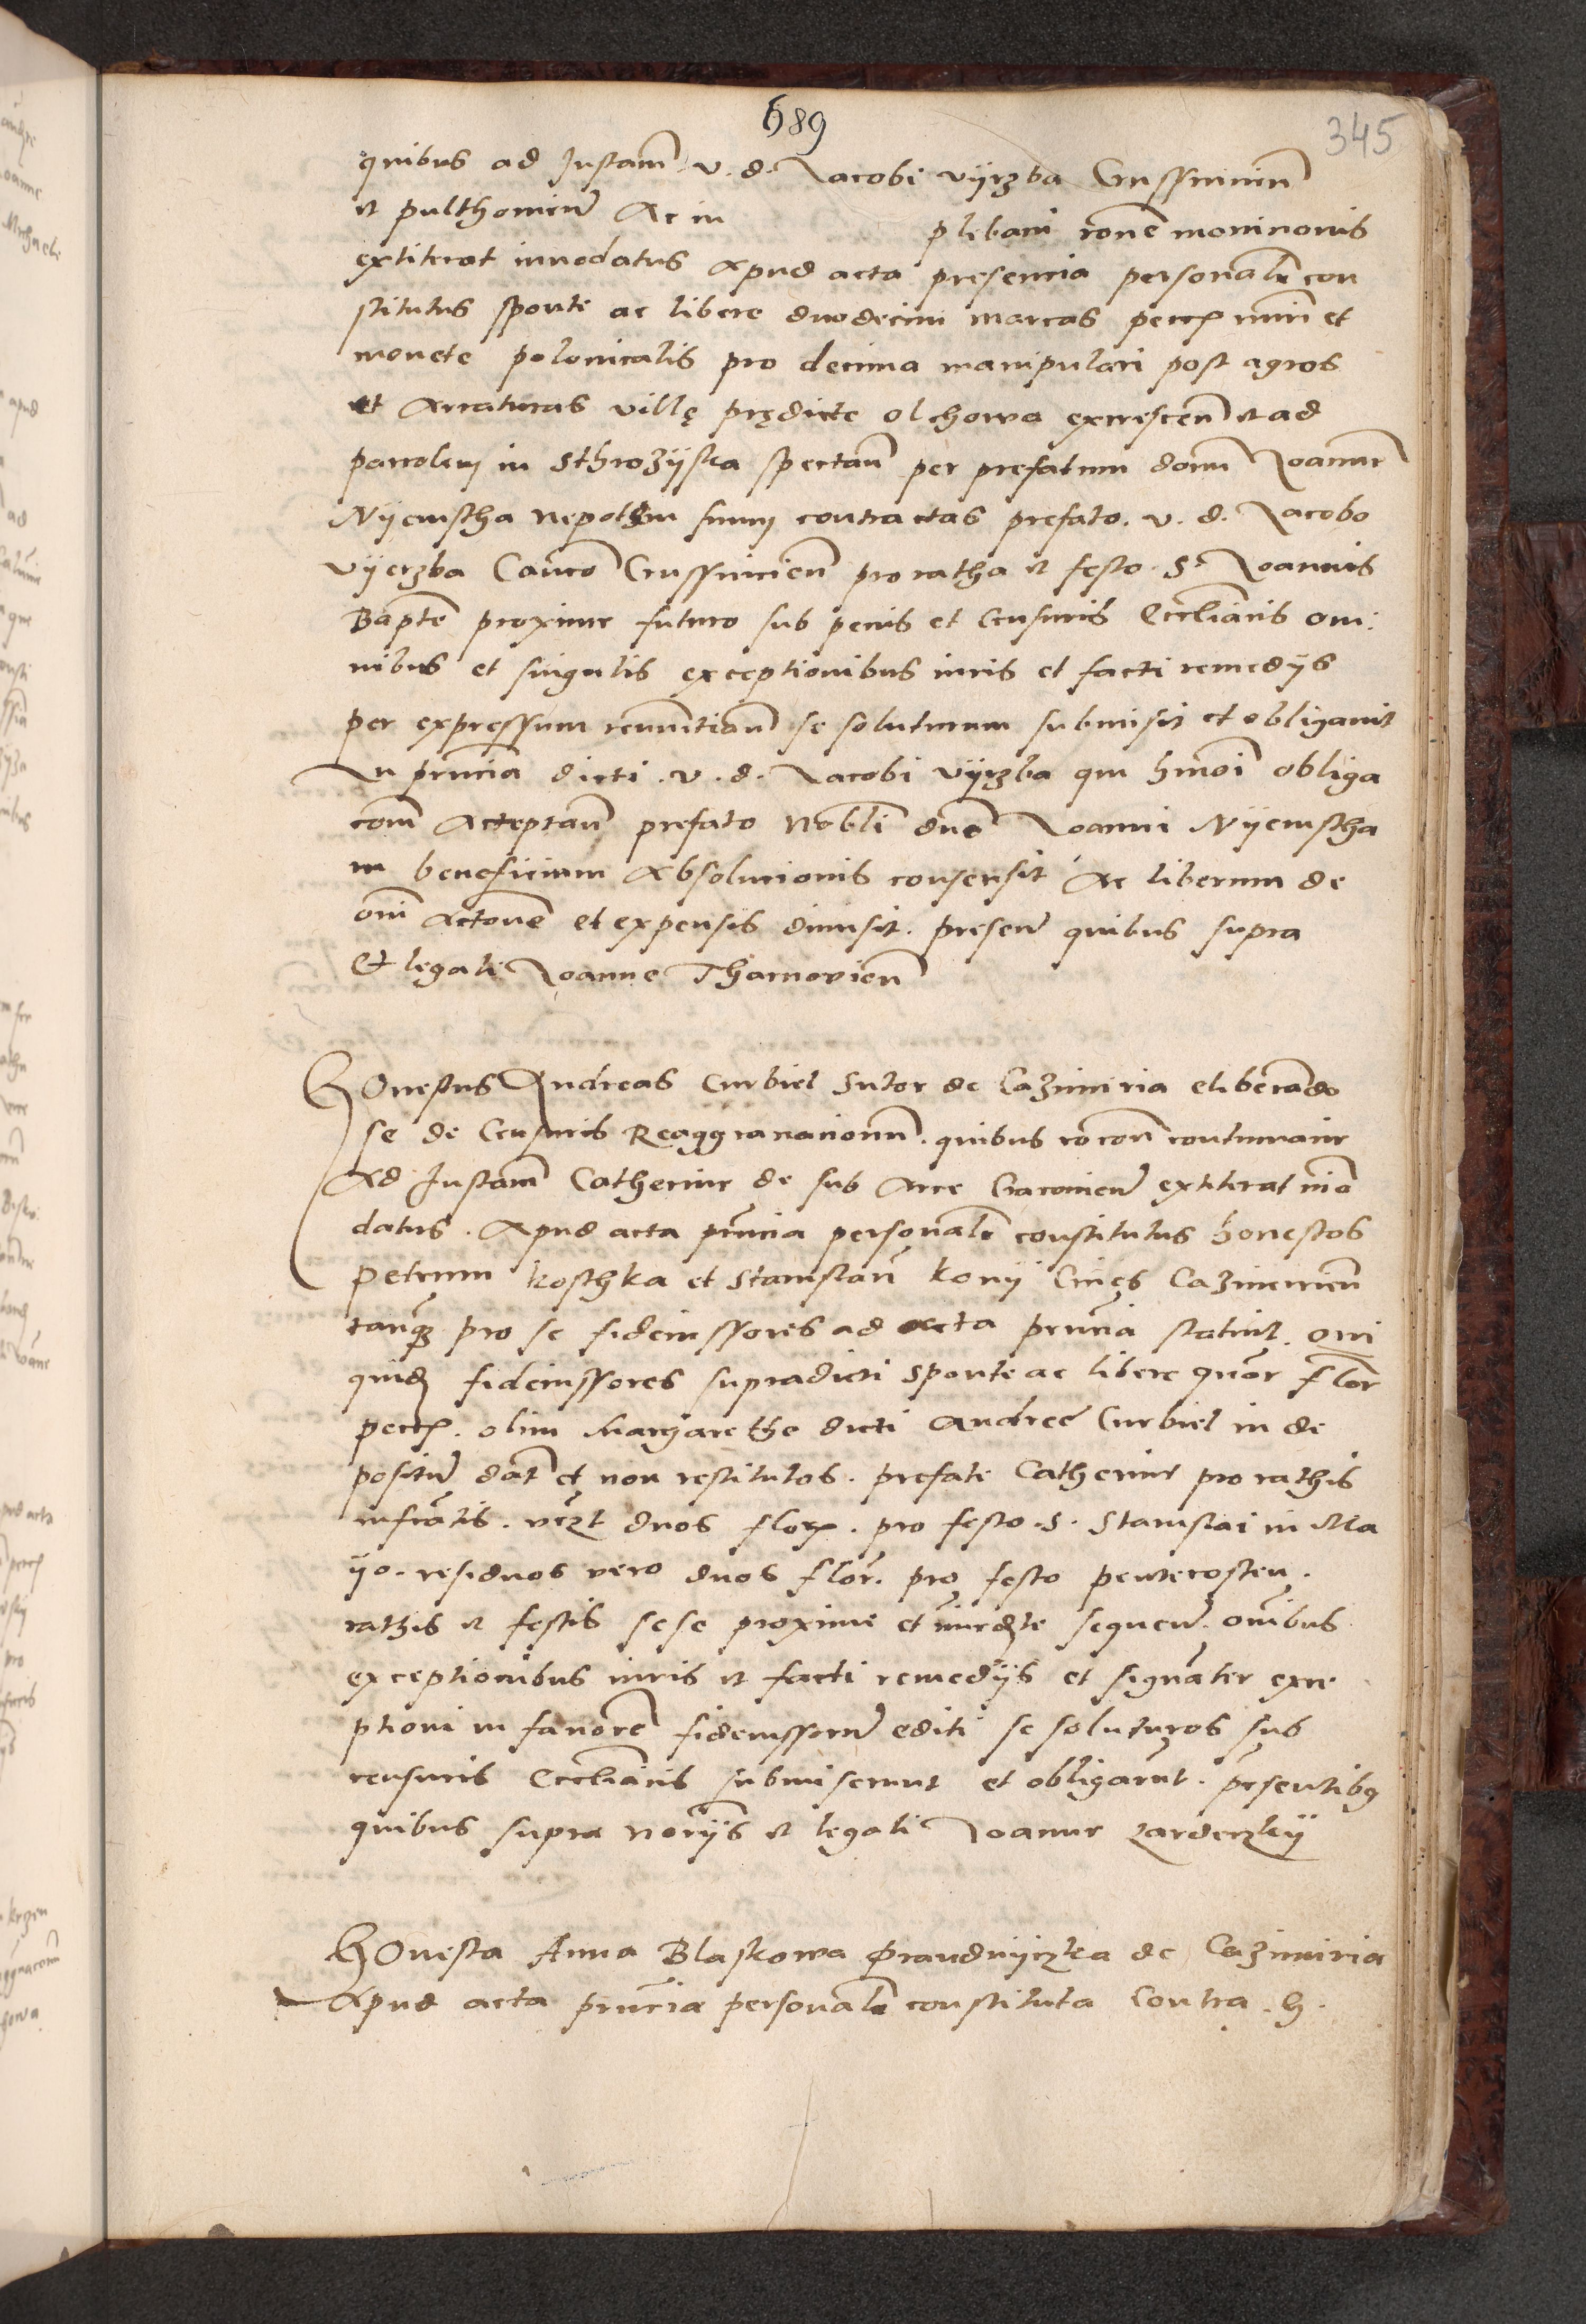 689
345
quibus ad Instam̄ v. d. Jacobi vÿrzba Crusswicien̄
et pulthowien̄ Ac in plebani rōne moninonis
extiterat innodatus Apud acta presencia personalr̄ con
stitutus sponte ac libere duodecim marcas pecc̄ num̄ et
monete polonicalis pro decima manipulari post agros
et Araturas villę prędicte olchowa excrescen̄ et ad
parrohem in Sthrozÿska spectan̄ per prefatum donū Joannē
Nÿemstha nepothem suum contractas prefato. v. d. Jacobo
vÿerzba Canco Crusswicien̄ pro ratha et festo. S. Joannis
Bapte proxime futuro sub penis et Censuris Eccl̄iāis om:
nibus et singulis exceptionibus iuris et facti remedÿs
per expressum renuntian̄ se soluturum submisit et obligauit
In pn̄ncia dicti. v. d. Jacobi vÿrzba qui hmōi obliga
com̄ Acceptan̄ prefato Nobl̄i dno Joanni Nÿemstha
in beneficium Absolucionis consensit Ac liberum de
om̄i Actōne et expensis dimisit. presen̄ quibus supra
Et legali Joanne Tharnovien̄
HOnestus Andreas Curbiel Sutor de Cazimiria eliberando
se de Censuris Reaggrauacionum. quibus contumacie
Ad Instam̄ Catherine de sub Arce Cracouien̄ extiterat inno
datus. Apud acta pn̄ncia personalr̄ constitutus honestos
Petrum koschka et Stanislaū konÿ Ciues Cazimerien̄
tanq̄ pro se fideiussores ad acta pn̄ncia statuit. qui
quid̄ fideiussores supradicti sponte ac libere quor̄ flor
pecc̄. olim Margarethe dicti Andree Curbiel in de
positum̄ dat̄ et non restitutos. prefate Catherine pro rathis
infrātis. vcz̄t duos flor̄. pro festo. S. Stanislai in Ma
ÿo. residuos vero duos flor̄. pro festo pentecosten.
rathis et festis sese proxime et īmedate sequen̄. om̄ibus
exceptionibus iuris et facti remedÿs et signāter exce
ptioni in fauorē fideiussorum̄ editi se soluturos sub
censuris Eccl̄iāis submiserunt et obligarūt. p̄sentibꝯ
quibus supra norÿs et legali Joanne zarderzkÿ
HOnesta Anna Blaskowa prandnÿczka de Cazimiria
Apud acta pn̄ncia personalr̄ constituta Contra. h.